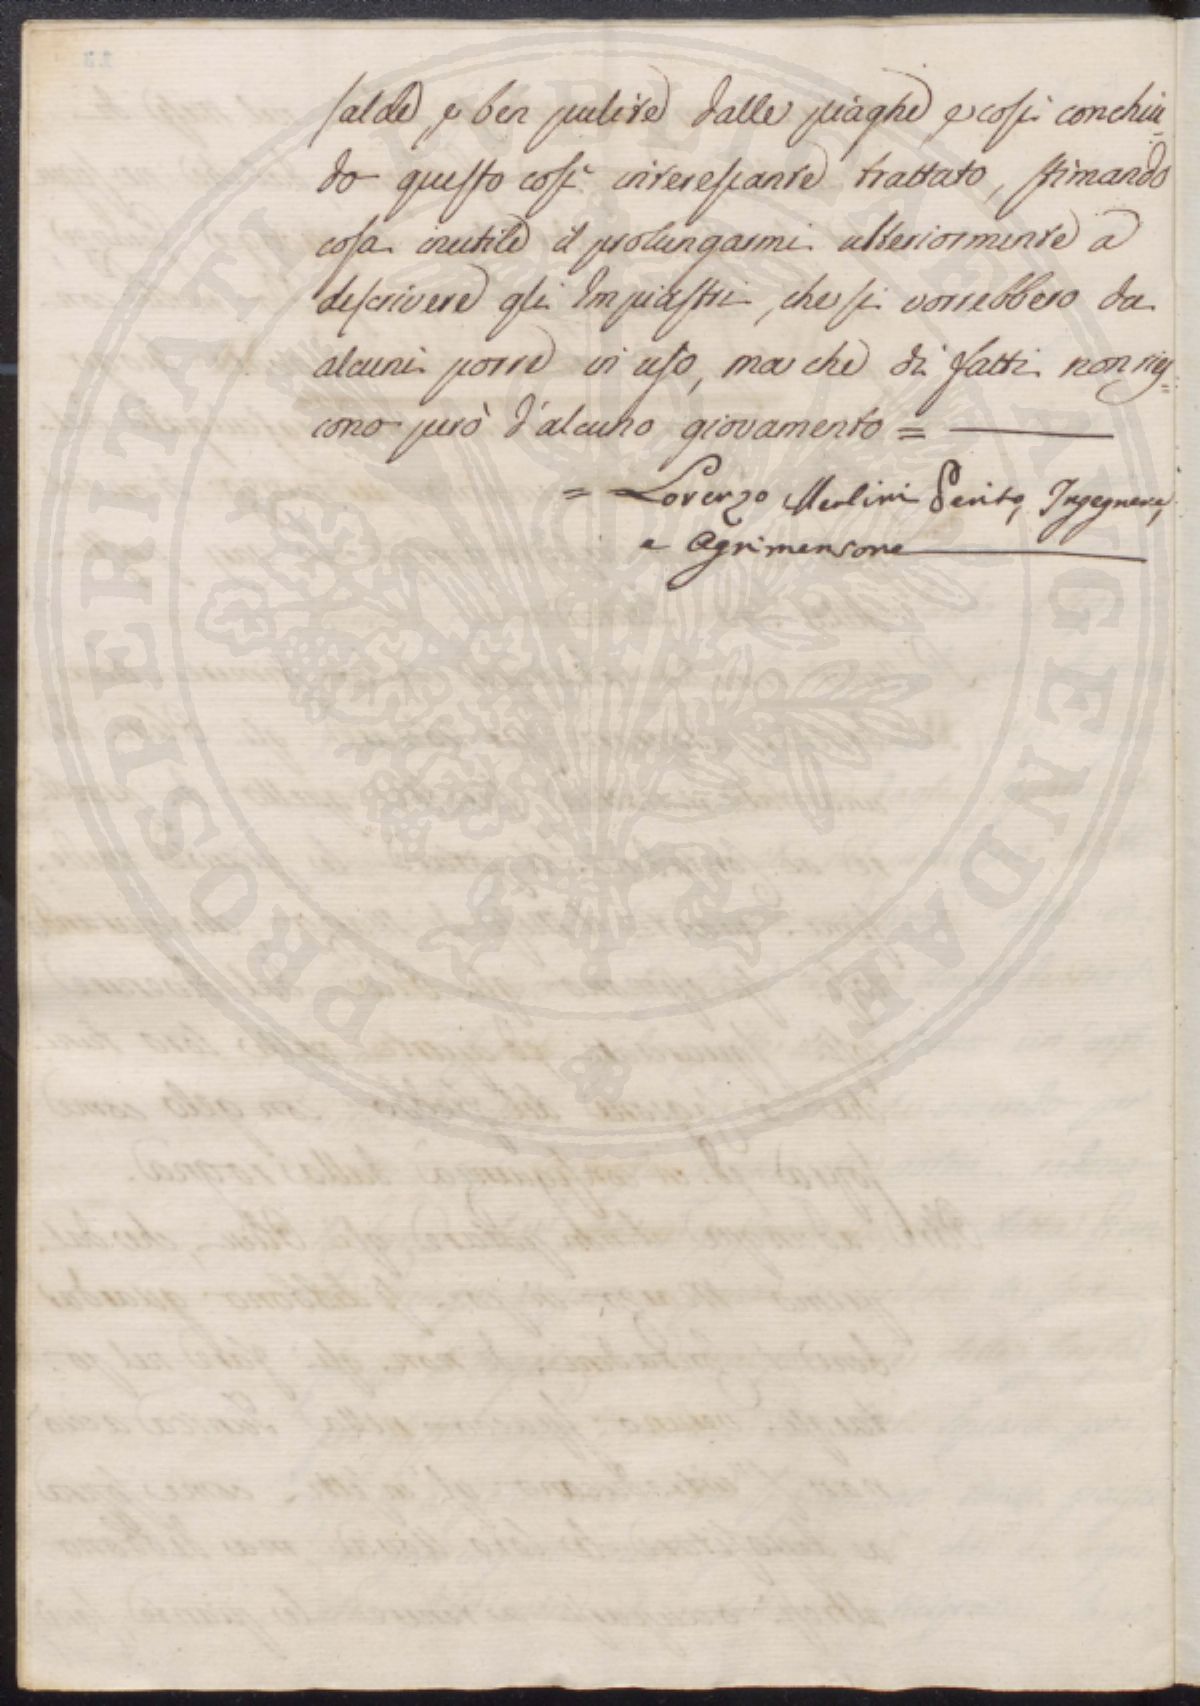 salde, e ben pulite dalle piaghe, e così conchiu=
do questo così interessante trattato, stimando
cosa inutile il prolungarmi ulteriormente a
descrivere gli Impiastri, che si vorrebbero da
alcuni porre in uso, ma che di fatti non ries=
cono però d'alcuno giovamento =
= Lorenzo Merlini Perito, Ingegnere,
e Agrimensore
PROSPERITATI PUBLICAE AUGENDAE